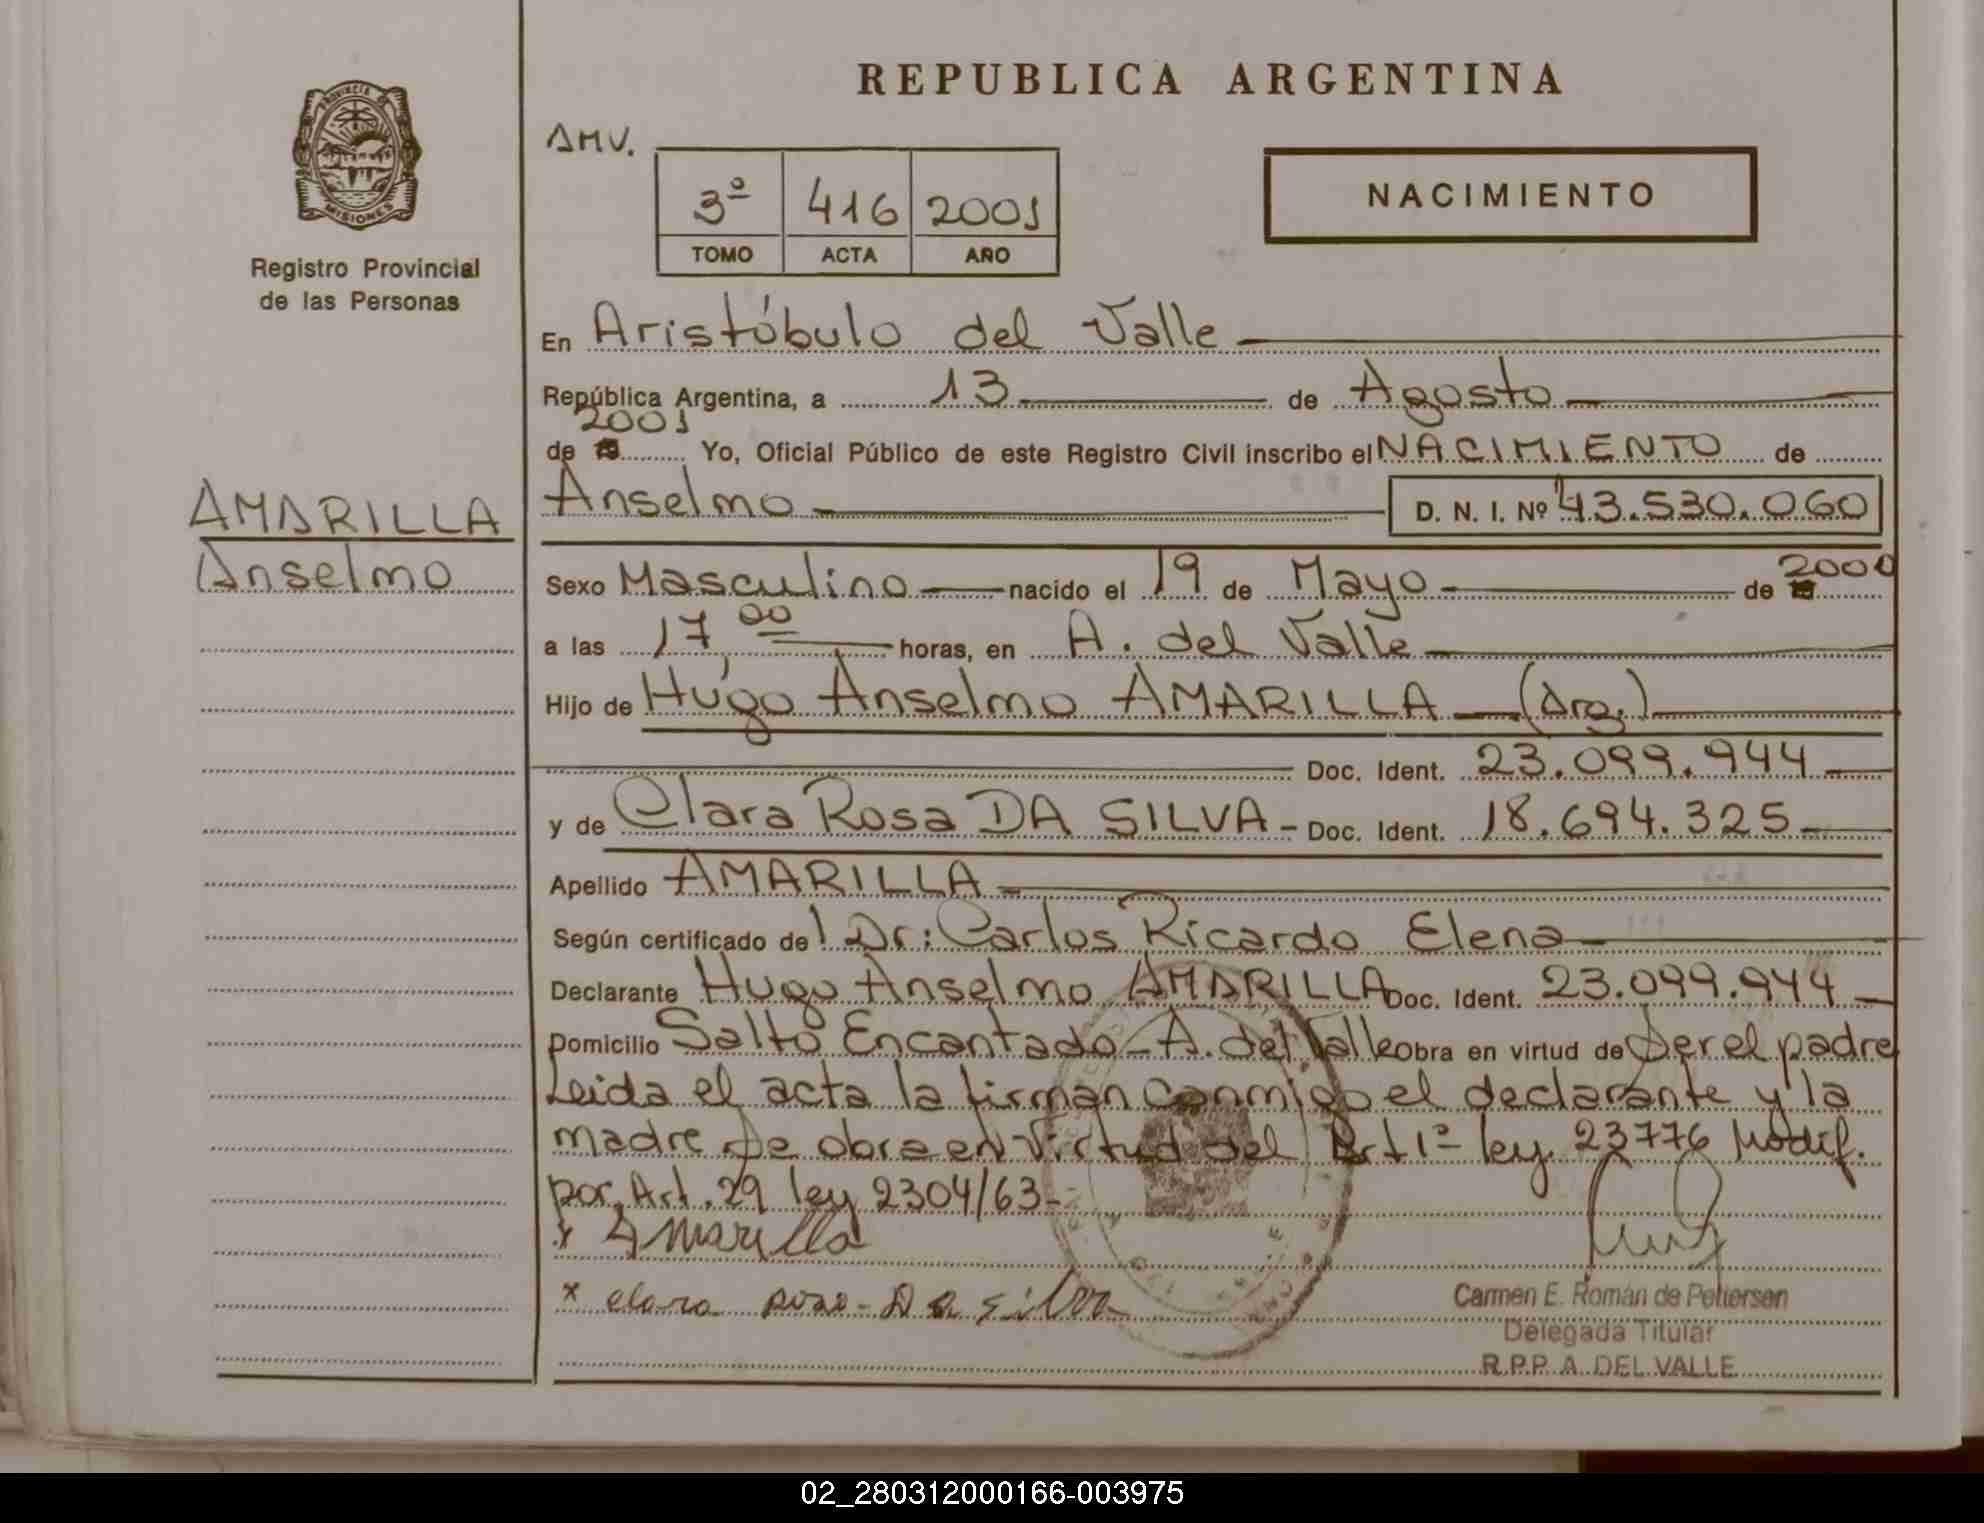 REPUBLICA ARGENTINA
PROVINCIA DE
MISIONES
Registro Provincial
de las Personas
AMV.
3º 416 2001
TOMO ACTA AÑO
NACIMIENTO
En Aristóbulo del Valle
República Argentina, a 13 de Agosto
2001
de Yo, Oficial Público de este Registro Civil inscribo el NACIMIENTO de
AMARILLA
Anselmo
Anselmo D. N. I. Nº 43.530.060
Sexo Masculino nacido el 19 de Mayo de 2000
a las 17,00 horas, en A. del Valle
Hijo de Hugo Anselmo AMARILLA (Arg.)
Doc. Ident. 23.099.944
y de Clara Rosa DA SILVA - Doc. Ident. 18.694.325
Apellido AMARILLA
Según certificado del Dr: Carlos Ricardo Elena
Declarante Hugo Anselmo AMARILLA Doc. Ident. 23.099.944
Domicilio Salto Encantado - A. del Valle obra en virtud de Ser el padre
Leida el acta la firman conmigo el declarante y la
madre Se obra en virtud del Art 1º ley 23776 Modif.
por Art. 29 ley 2304/63-
x Amarilla
x clara rosa - Da silva
Carmen E. Román de Pettersen
Delegada Titular
R.P.P. A. DEL VALLE
02_280312000166-003975